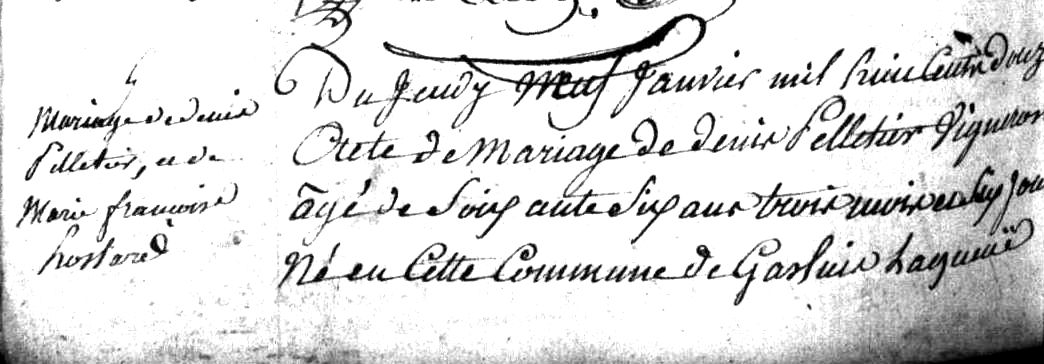 4
Mariage de denis
Pelletier, et de
Marie francoise
hostard
Du Jeudy Neuf Janvier mil huit Cents douz
Acte de Mariage de denis Pelletier Vigneron
âgé de Soix ante Six ans trois mois et Six Jou
Né en Cette Commune de